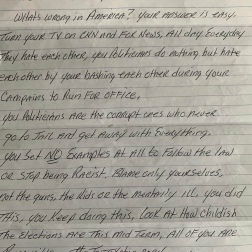 What's wrong in America? your answer is easy.
Turn your TV on CNN and Fox News, All day Everyday
They hate each other, you Politicians do nothing but hate
each other by your bashing each other during your
Campains to Run For OFFICE.
you Politicians Are the corrupt ones who never
go to Jail and get away with Everything.
you Set NO Examples At All to Follow the law
OR Stop being Racist. Blame only yourselves,
not the guns, the Kids or the Mentally ill, you did
This, you Keep doing this, look At how childish
The Elections Are This Mid Term, All OF you Are